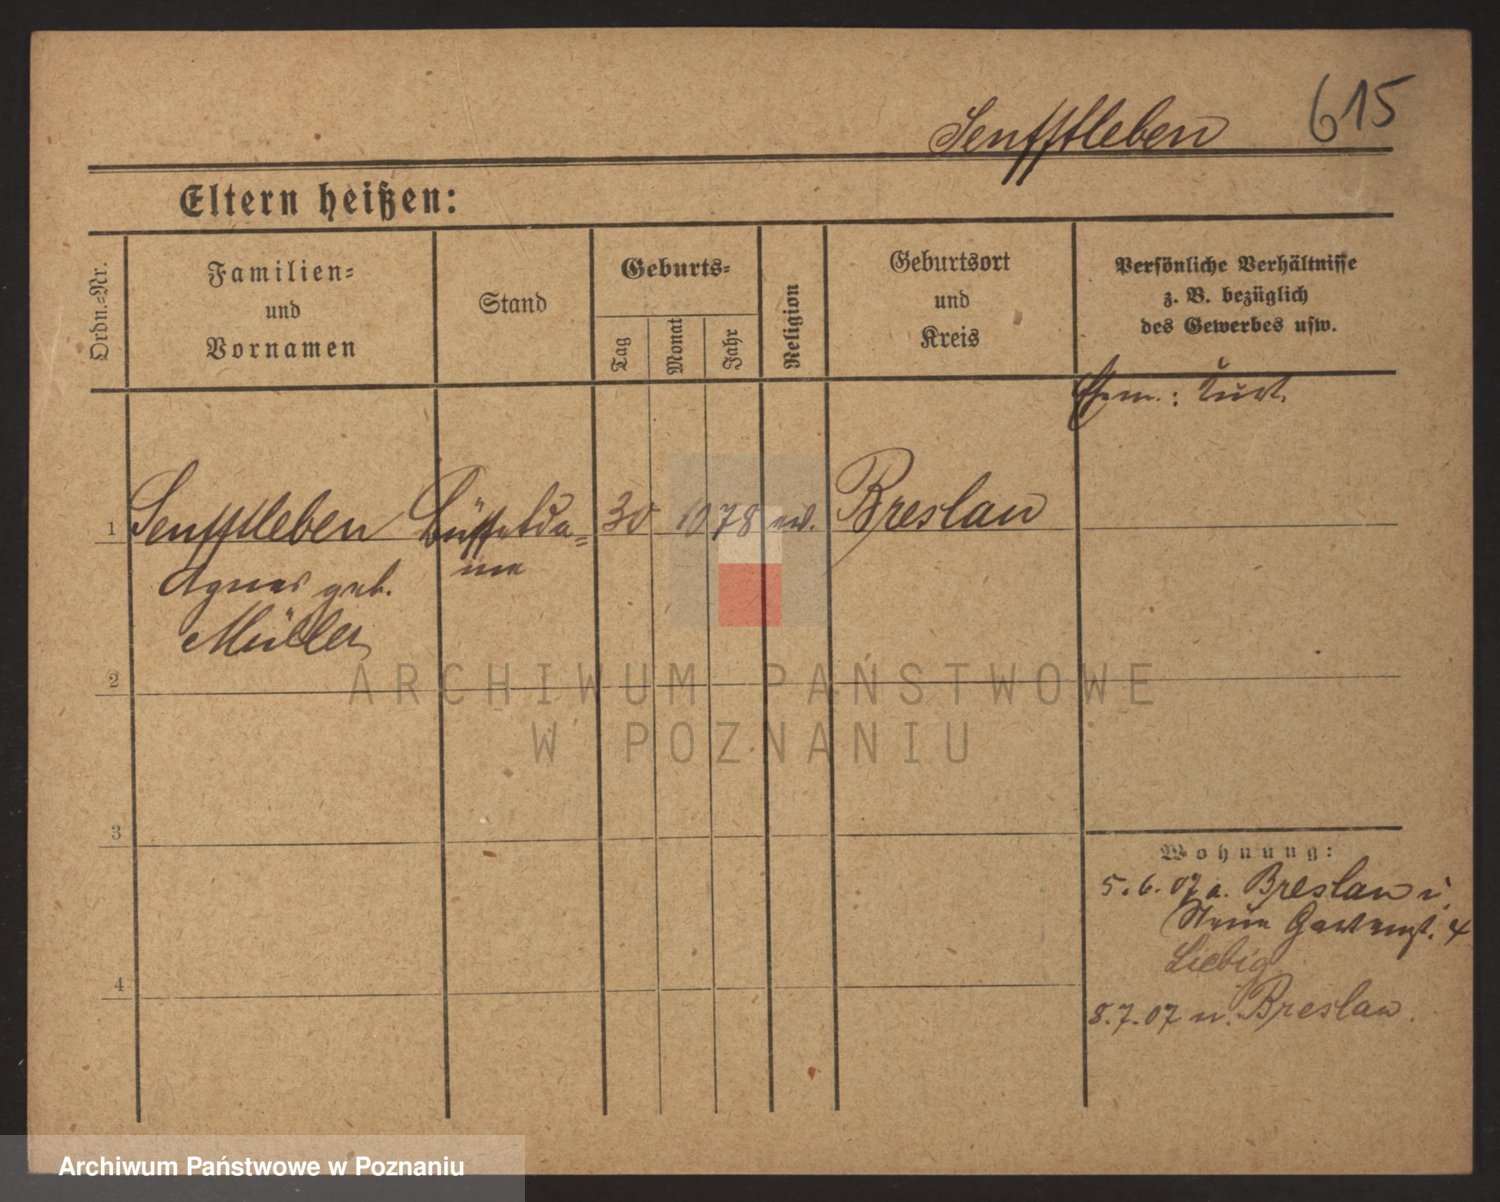 Senfftleben 615
Eltern heißen:
Ordn.=Nr.
Familien=
und
Vornamen
Stand
Geburts=
Tag
Monat
Jahr
Religion
Geburtsort
und
Kreis
Persönliche Verhältnisse
z. B. bezüglich
des Gewerbes usw.
Ehem.: Kurt.
1 Senfftleben Büffetda= 30 10 78 ev. Breslau
Agnes geb. me
Müller
2
3
4
Wohnung:
5.6.07 a. Breslau i.
Neue Gartenst. 4
Liebig
8.7.07 n. Breslau.
ARCHIWUM PAŃSTWOWE
W POZNANIU
Archiwum Państwowe w Poznaniu